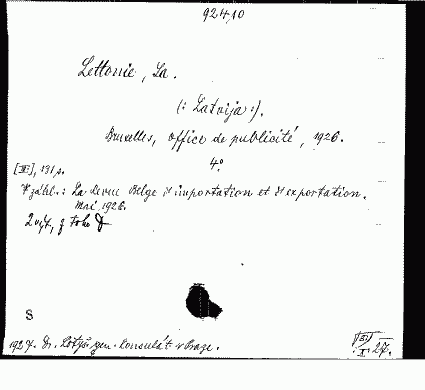 924,10
Lettonie, La.
(: Latvija :).
Bruxelles, office de publicité, 1926.
4°.
[III], 131 p.
V záhl.: La Revue Belge d'importation et d'exportation.
Mai 1926.
2 výt., z toho
S
1927. Dr. Lotyš. gen. konsulát v Praze.
I. 27.